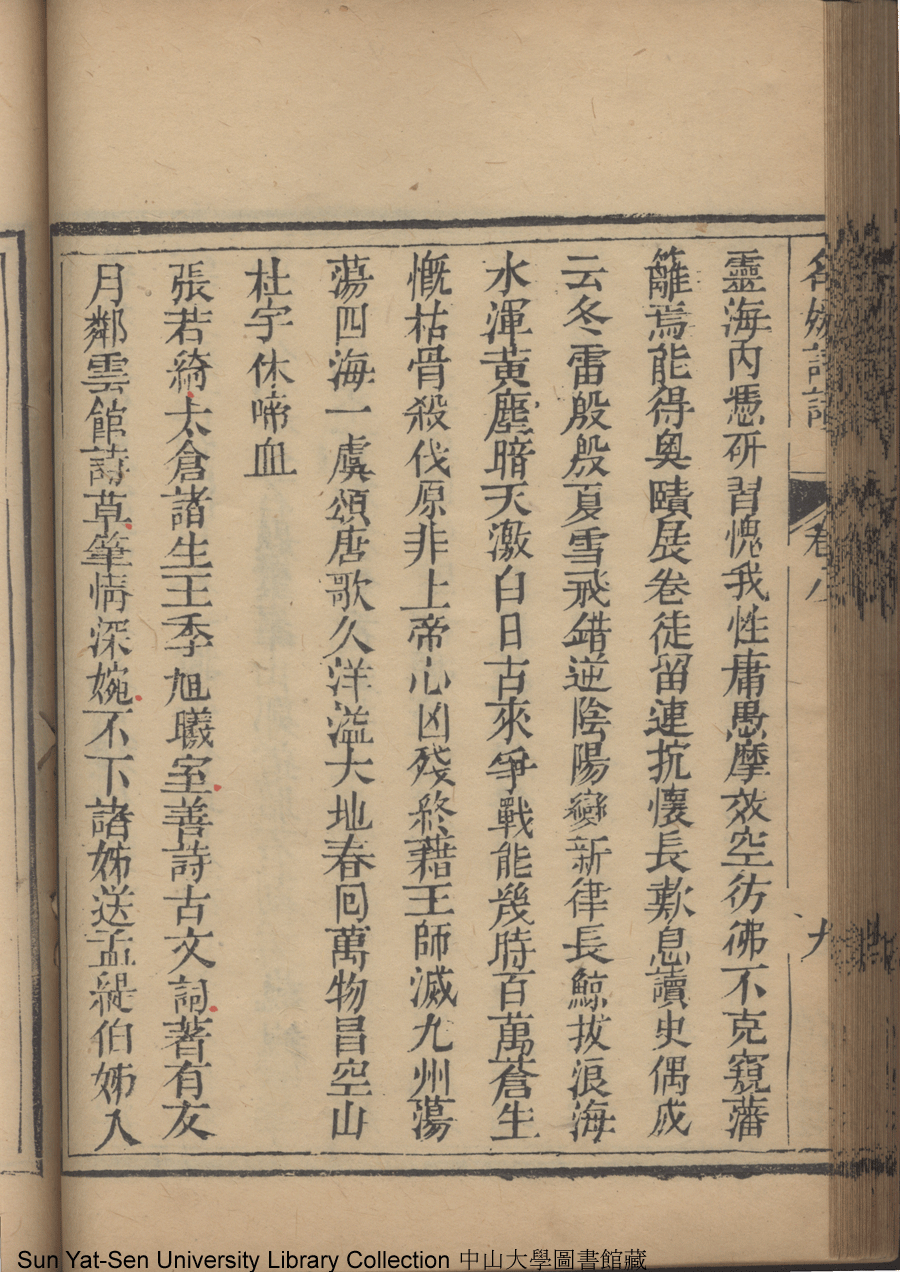 名媛詩話 卷八 九
靈海內憑硏習愧我性庸愚摩效空彷彿不克窺藩
籬焉能得奧賾展卷徒留連抗懷長歎息讀史偶成
云冬雷殷殷夏雪飛錯逆陰陽變新律長鯨拔浪海
水渾黃塵暗天激白日古來爭戰能幾時百萬蒼生
慨枯骨殺伐原非上帝心凶殘終藉王師滅九州蕩
蕩四海一虞頌唐歌久洋溢大地春回萬物昌空山
杜宇休啼血
張若綺太倉諸生王季旭曦室善詩古文詞著有友
月鄰雲館詩草筆情深婉不下諸姊送孟緹伯姊入
Sun Yat-Sen University Library Collection 中山大學圖書館藏